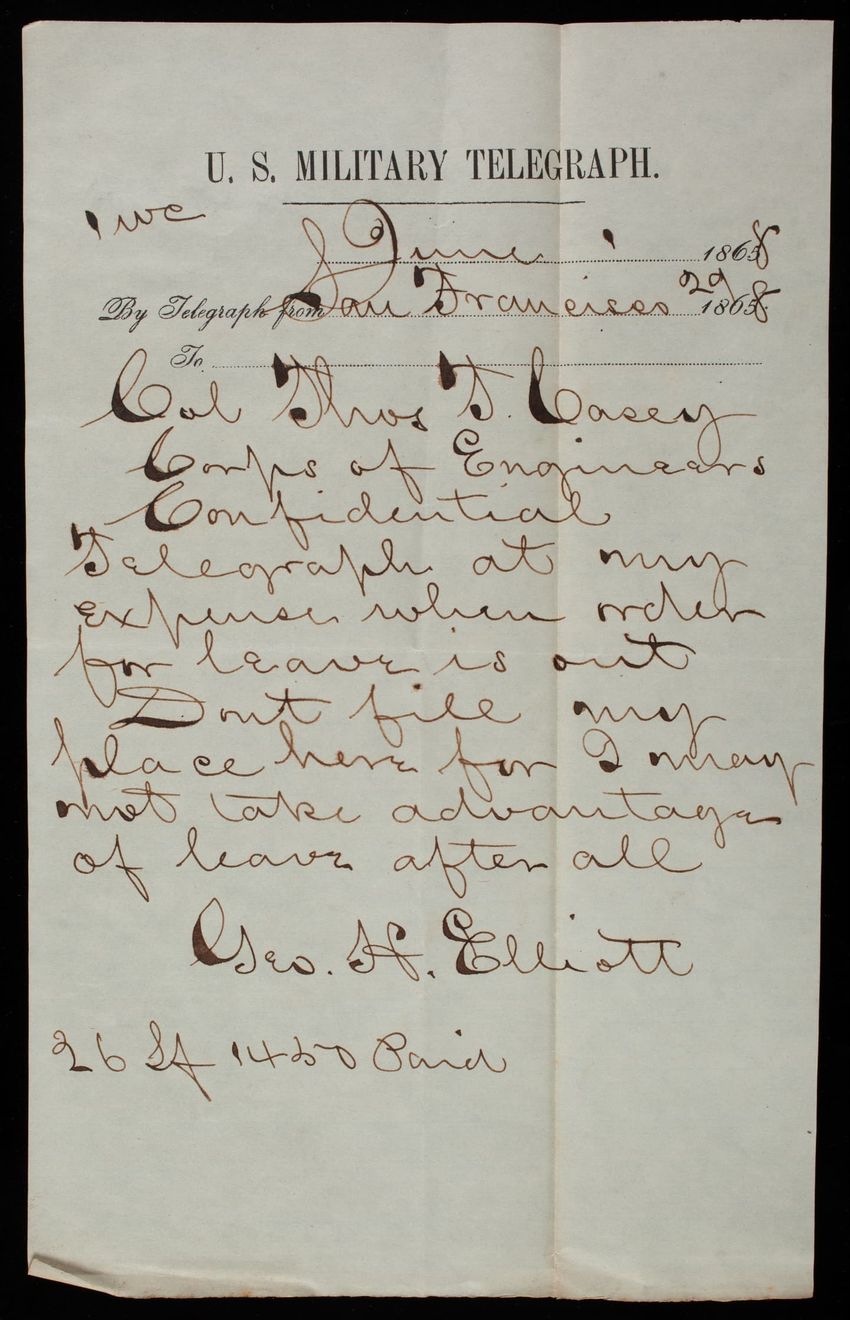 U. S. MILITARY TELEGRAPH.
1 wc
June 1 1868
By Telegraph from San Francisco 29 1868
To
Col Thos T. Casey
Corps of Engineers
Confidential
Telegraph at my
expense when order
for leave is out
Dont fill my
place here for I may
not take advantage
of leave after all
Geo. H. Elliott
26 1450 Paid